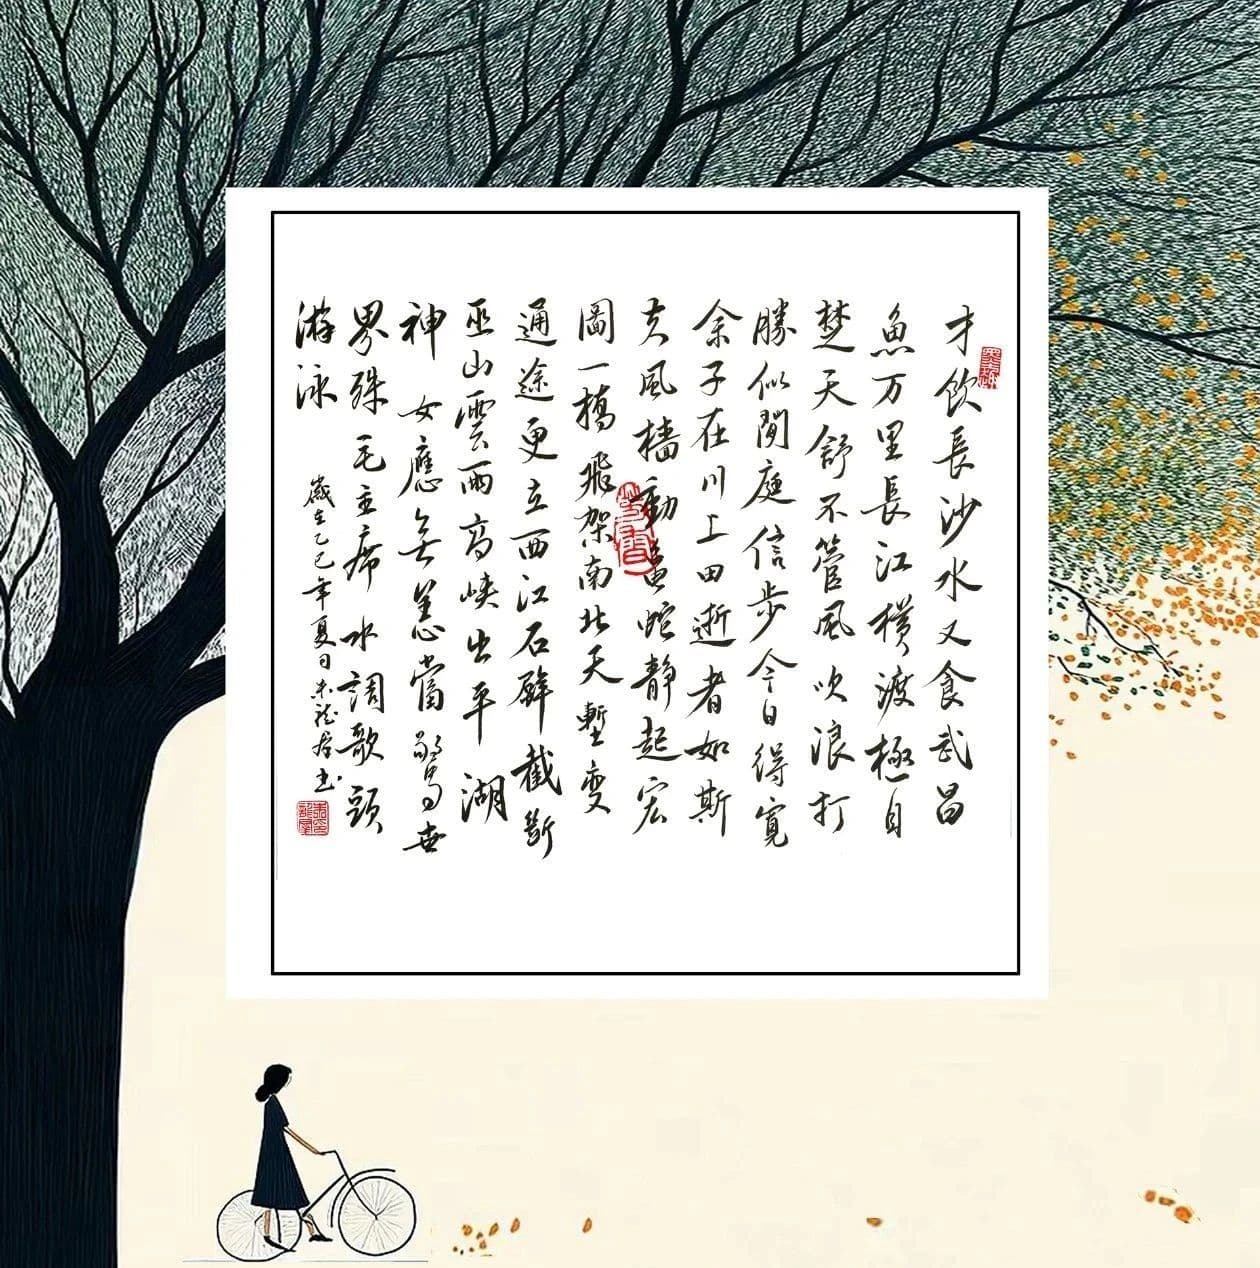 才飲長沙水又食武昌
魚万里長江横渡極目
楚天舒不管風吹浪打
勝似閒庭信步今日得寬
余子在川上曰逝者如斯
夫風檣動龜蛇靜起宏
圖一橋飛架南北天塹变
通途更立西江石壁截斷
巫山雲雨高峡出平湖
神女應無恙當驚世
界殊毛主席水調歌頭
游泳
歲在乙巳年夏日未龍居書